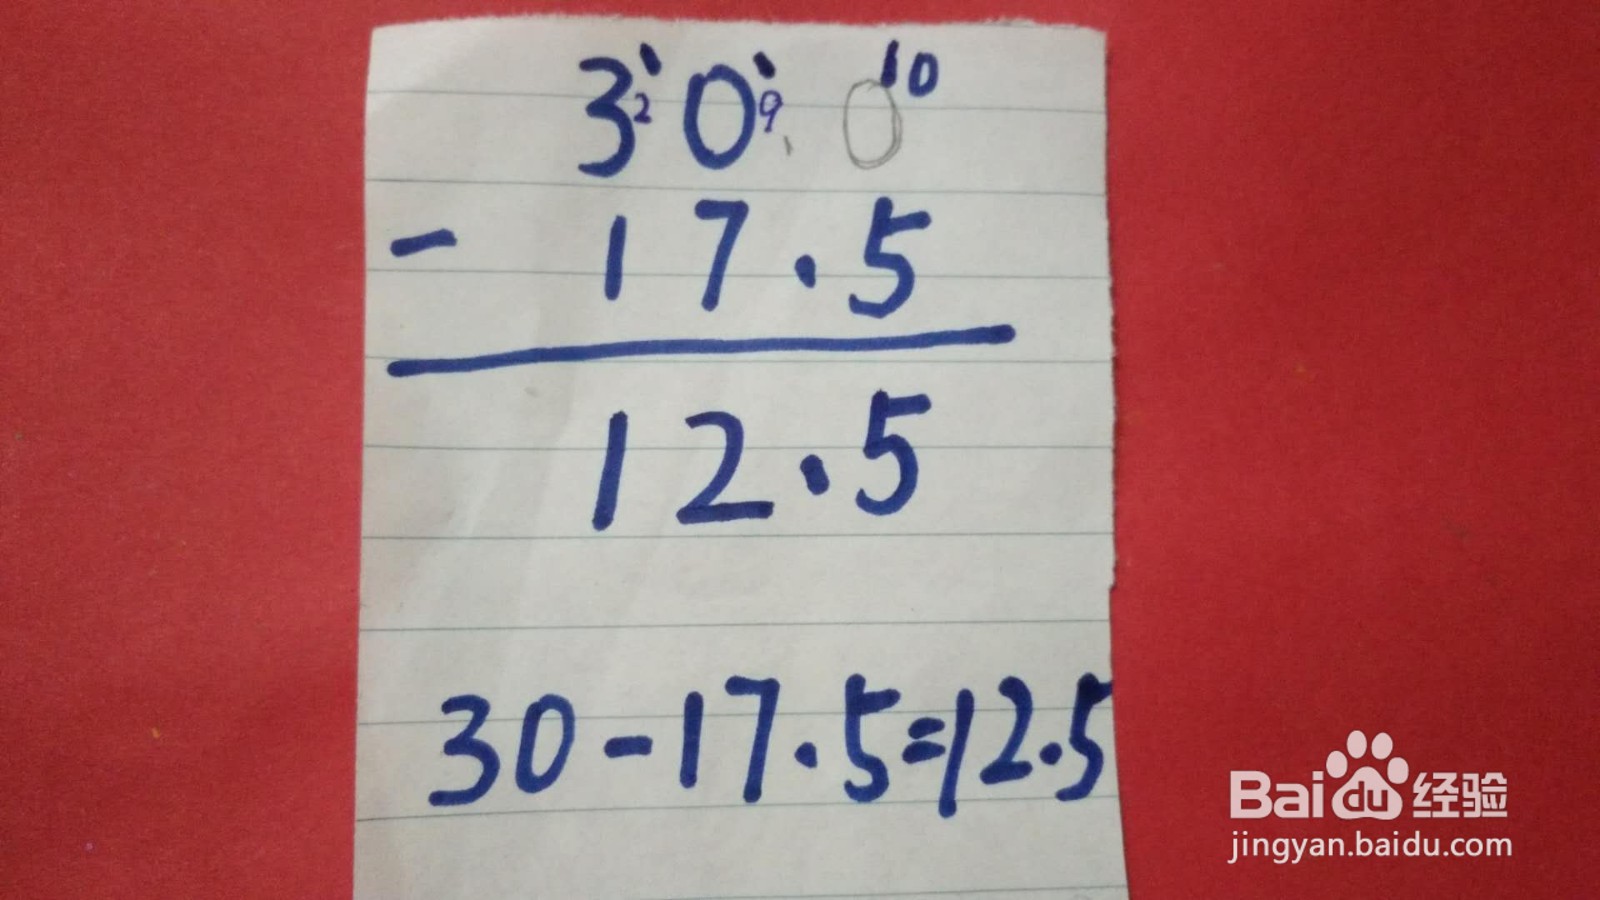 10
30.0
2 9
- 17.5
12.5
30-17.5=12.5
Baidu经验
jingyan.baidu.com